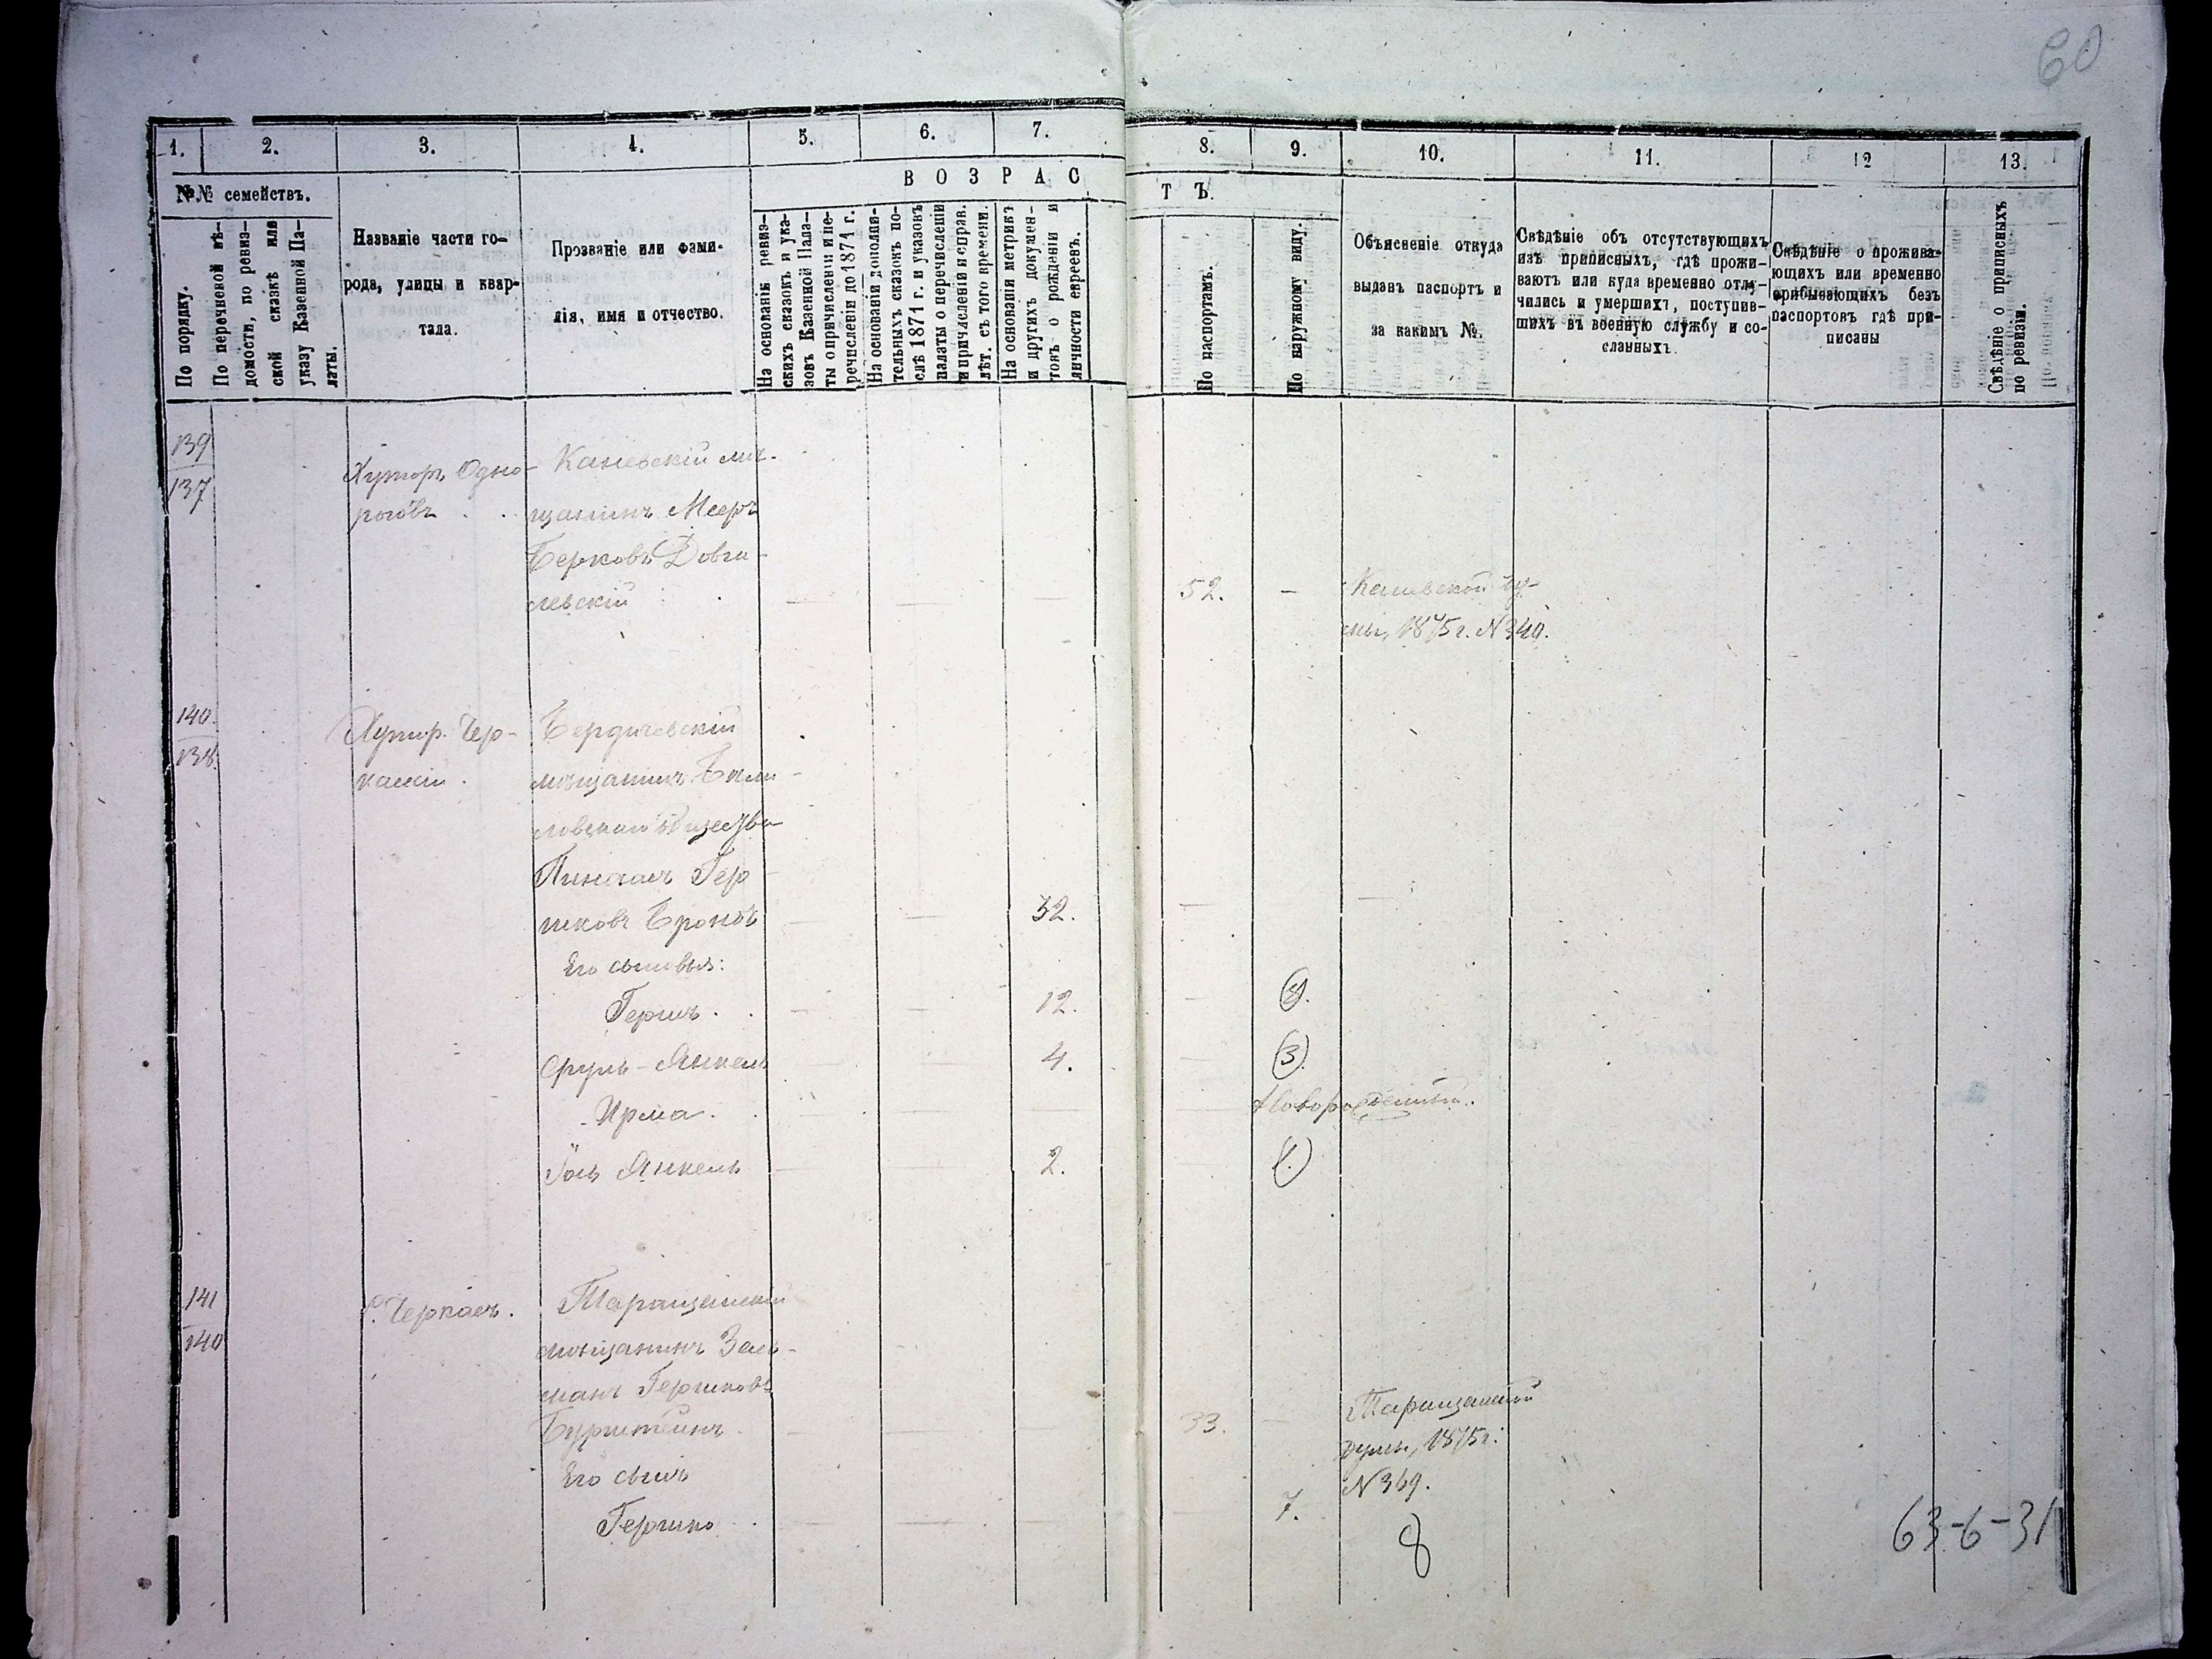 60
1. 2. 3. 4. 5. 6. 7. 8. 9. 10. 11. 12 13.
№№ семействъ.
По порядку.
По перечневой вѣ-
домости, по ревиз-
ской сказкѣ или
указу Казенной Па-
латы.
Названіе части го-
рода, улицы и квар-
тала.
Прозваніе или фами-
лія, имя и отчество.
ВОЗРАСТЪ.
На основаніи ревиз-
скихъ сказокъ и ука-
зовъ Казенной Пала-
ты о причисленіи и пе-
речисленіи до 1871 г.
На основаніи дополни-
тельныхъ сказокъ по-
слѣ 1871 г. и указовъ
палаты о перечисленіи
и причисленіи и справ.
лѣт. съ того времени.
На основаніи метрикъ
и другихъ докумен-
товъ о рожденіи и
личности евреевъ.
По паспортамъ.
По наружному виду.
Объясненіе откуда
выданъ паспортъ и
за какимъ №.
Свѣдѣніе объ отсутствующихъ
изъ приписныхъ, гдѣ прожи-
ваютъ или куда временно отлу-
чились и умершихъ, поступив-
шихъ въ военную службу и со-
сланныхъ.
Свѣдѣніе о прожива-
ющихъ или временно
прибывающихъ безъ
паспортовъ гдѣ при-
писаны
Свѣдѣніе о приписныхъ
по ревизіи.
139
137
Хуторъ Одно-
роговъ . .
Каневскій мѣ-
щанинъ Мееръ
Берковъ Довга-
левскій
52. — Каневской ду-
мы, 1875 г. N 340.
140.
138.
Хутор. Чер-
каскій .
Бердичевскій
мѣщанинъ
общества
Пинхасъ Гер-
шковъ Бронъ
32.
Его сыновья:
Гершъ . . 12.
Сруль-Янкель 4. (3).
Ирма . . Новорожденный.
Іось Янкель 2. (1.)
141
140
С. Черкасъ.
Таращанскій
мѣщанинъ Заль-
манъ Гершковъ
Бурштейнъ 33.
Таращанской
думы, 1875 г.
N 369.
Его сынъ
Гершко . . 7.
8
63-6-31